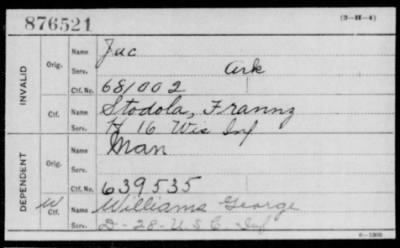 876521 (3-H-4)
INVALID Orig. Name Juc
Serv. Ark
Ctf. No. 681002
Ctf. Name Stodola, Franny
Serv. H 16 Wis Inf
DEPENDENT Orig. Name Man
Serv.
Ctf. No. 639535
W Ctf. Name Williams George
Serv. D-28-U S C Inf
6-1366